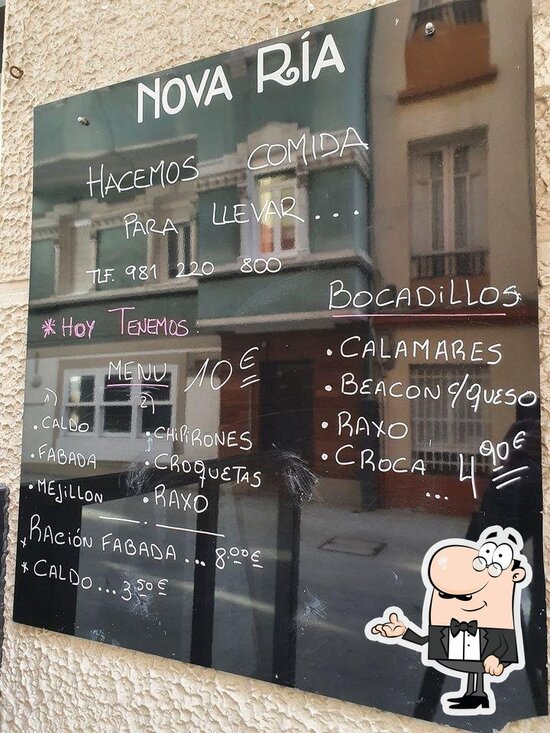 NOVA RÍA
HACEMOS COMIDA
PARA LLEVAR...
TLF. 981 220 800
* HOY TENEMOS:
MENU 10€
1)
• CALDO
• FABADA
• MEJILLON
2)
• CHIPIRONES
• CROQUETAS
• RAXO
* RACIÓN FABADA ... 8,00€
* CALDO ... 3,50€
BOCADILLOS
• CALAMARES
• BEACON c/QUESO
• RAXO
• CROCA
... 4,90€